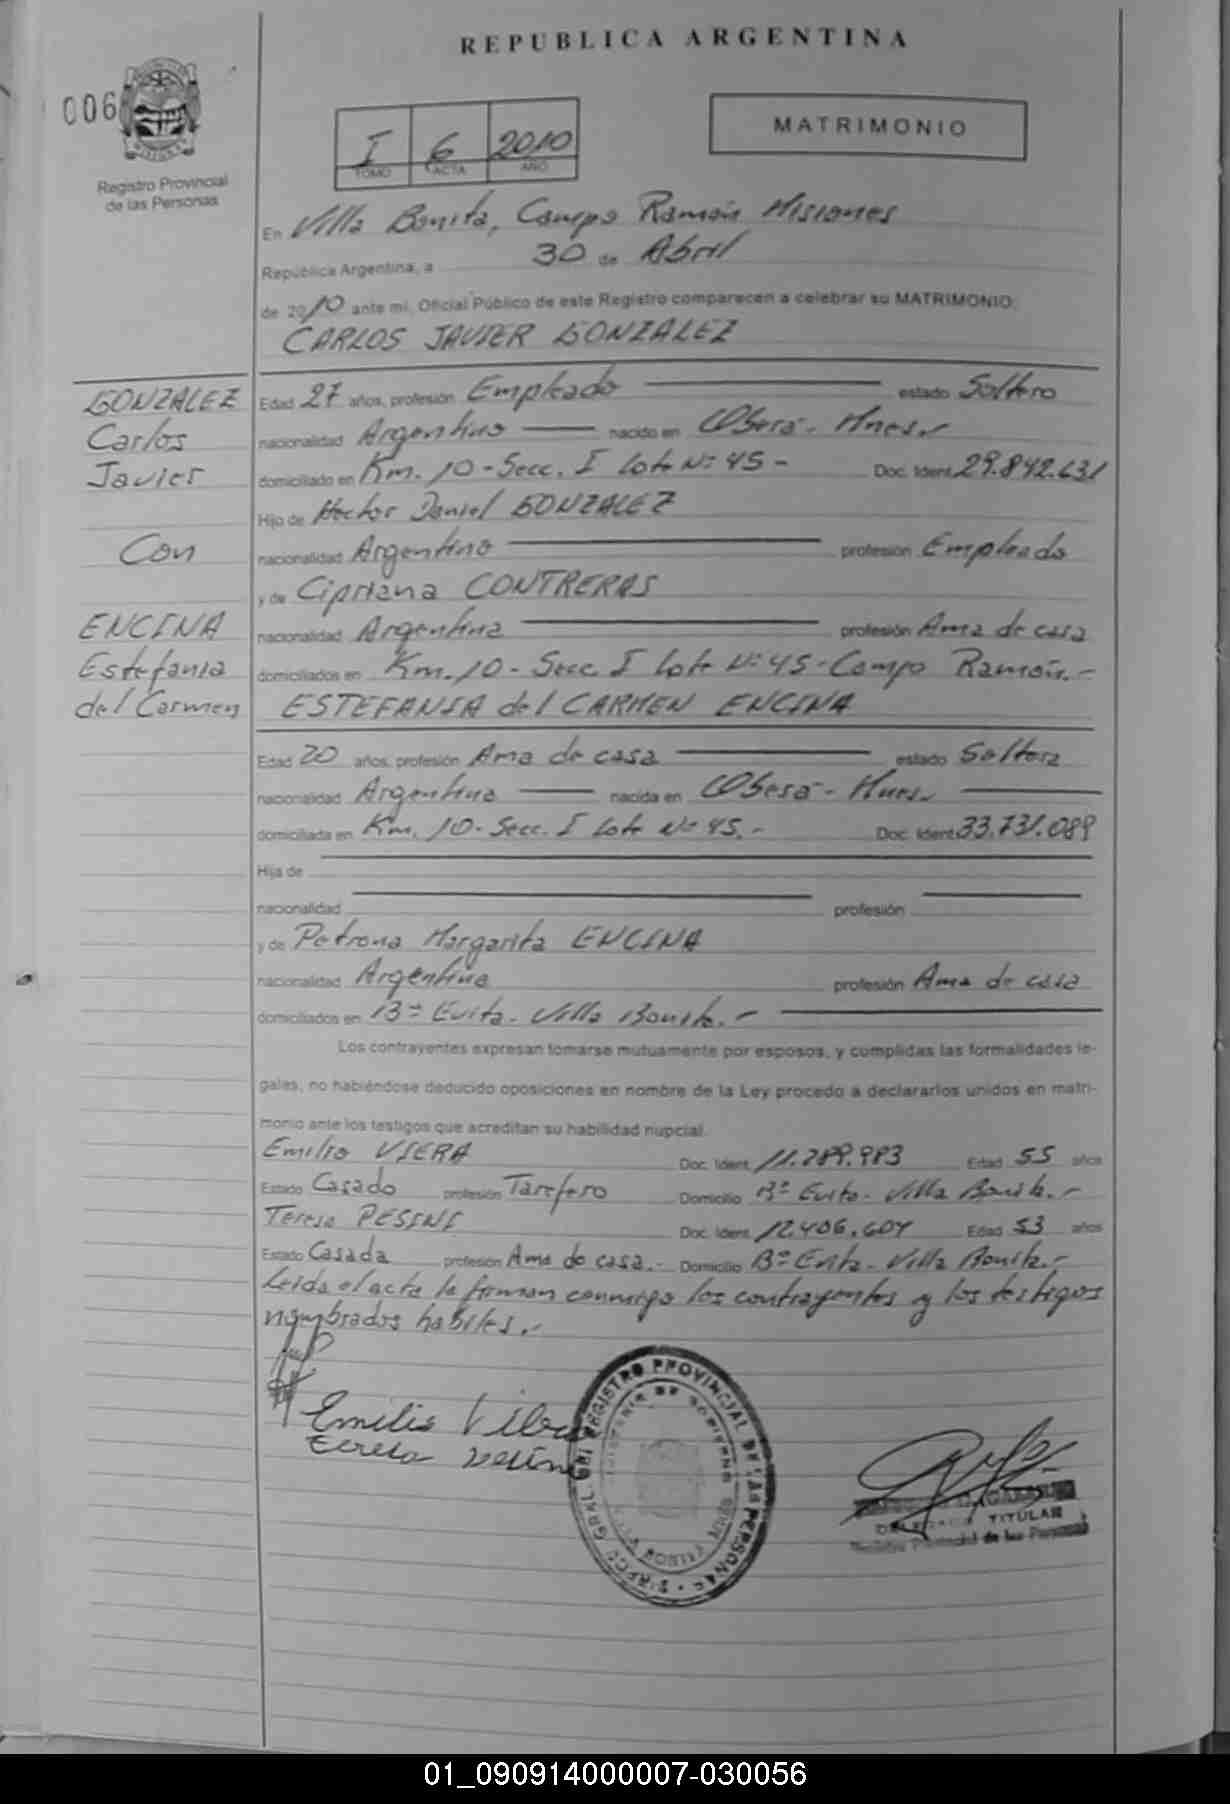 REPUBLICA ARGENTINA
006
Registro Provincial
de las Personas
I 6 2010
TOMO ACTA AÑO
MATRIMONIO
En Villa Bonita, Campo Ramón Misiones
República Argentina, a 30 de Abril
de 2010 ante mi, Oficial Público de este Registro comparecen a celebrar su MATRIMONIO:
CARLOS JAVIER GONZALEZ
GONZALEZ
Carlos
Javier
Con
ENCINA
Estefania
del Carmen
Edad 27 años, profesión Empleado estado Soltero
nacionalidad Argentino nacido en Oberá - Mnes.
domiciliado en Km. 10 - Secc. I Lote Nº 45 - Doc. Ident. 29.842.631
Hijo de Hector Daniel GONZALEZ
nacionalidad Argentino profesión Empleado
y de Cipriana CONTRERAS
nacionalidad Argentina profesión Ama de casa
domiciliados en Km. 10 - Secc. I Lote Nº 45 - Campo Ramón.-
ESTEFANIA del CARMEN ENCINA
Edad 20 años, profesión Ama de casa estado Soltera
nacionalidad Argentina nacida en Oberá - Mnes.
domiciliada en Km. 10 - Secc. I Lote Nº 45.- Doc. Ident. 33.731.089
Hija de
nacionalidad profesión
y de Petrona Margarita ENCINA
nacionalidad Argentina profesión Ama de casa
domiciliados en Bº Evita - Villa Bonita.-
Los contrayentes expresan tomarse mutuamente por esposos, y cumplidas las formalidades le-
gales, no habiéndose deducido oposiciones en nombre de la Ley procedo a declararlos unidos en matri-
monio ante los testigos que acreditan su habilidad nupcial.
Emilio VIERA Doc. Ident. 11.289.983 Edad 55 años
Estado Casado profesión Tarefero Domicilio Bº Evita - Villa Bonita.-
Teresa PESINI Doc. Ident. 12.406.604 Edad 53 años
Estado Casada profesión Ama de casa.- Domicilio Bº Evita - Villa Bonita.-
Leida el acta la firman conmigo los contrayentes y los testigos
nombrados habiles.-
Emilio
Teresa
REGISTRO PROVINCIAL DE LAS PERSONAS
TITULAR
Registro Provincial de las Personas
01_090914000007-030056